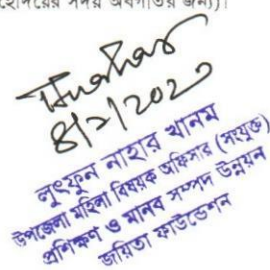 মহোদয়ের সদয় অবগতির জন্য))।
৪/২/২০২৩
লুৎফুন নাহার খানম
উপজেলা মহিলা বিষয়ক অফিসার (সংযুক্ত)
প্রশিক্ষণ ও মানব সম্পদ উন্নয়ন
জয়িতা ফাউন্ডেশন